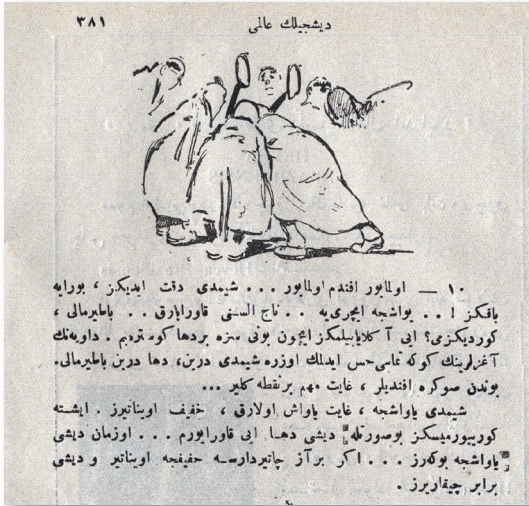 ديشجيلك عالمى
٣٨١
١٠ — اولمايور افندم اولمايور . . . شيمدى دقت ايديكز ، بورايه
باقكز ! . . يواشجه ايچرى يه . . تاج السنى قاورايارق . . باطيرمالى ،
كورديكزمى ؟ ايى آ كلايابيلمكز ايچون بونى سزه بردها كوستردم . داويه نك
آغزلرينك كوكه تماسى حس ايدلك اوزره شيمدى درين، دها درين باطيرمالى.
بوندن صوكره افنديلر ، غايت مهم بر نقطه كلير ...
شيمدى ياواشجه ، غايت ياواش اولارق ، خفيف اويناتيرز . ايشته
كورييورميسكز بوصورتله ديشى دها ايى قاورايورم . . . اوزمان ديشى
ياواشجه بوكه رز . . . اكر بر آز چاتيردارسه خفيفجه اويناتير و ديشى
برابر چيقاريرز .